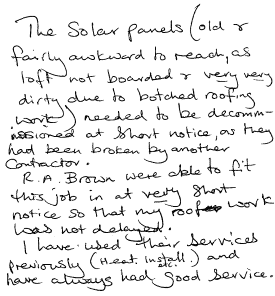 The Solar panels (old &
fairly awkward to reach, as
loft not boarded & very very
dirty due to botched roofing
work) needed to be decomm-
issioned at short notice, as they
had been broken by another
Contractor.
R.A. Brown were able to fit
this job in at very short
notice so that my roof work
was not delayed.
I have used their services
previously (Heat. install. etc.) and
have always had good service.